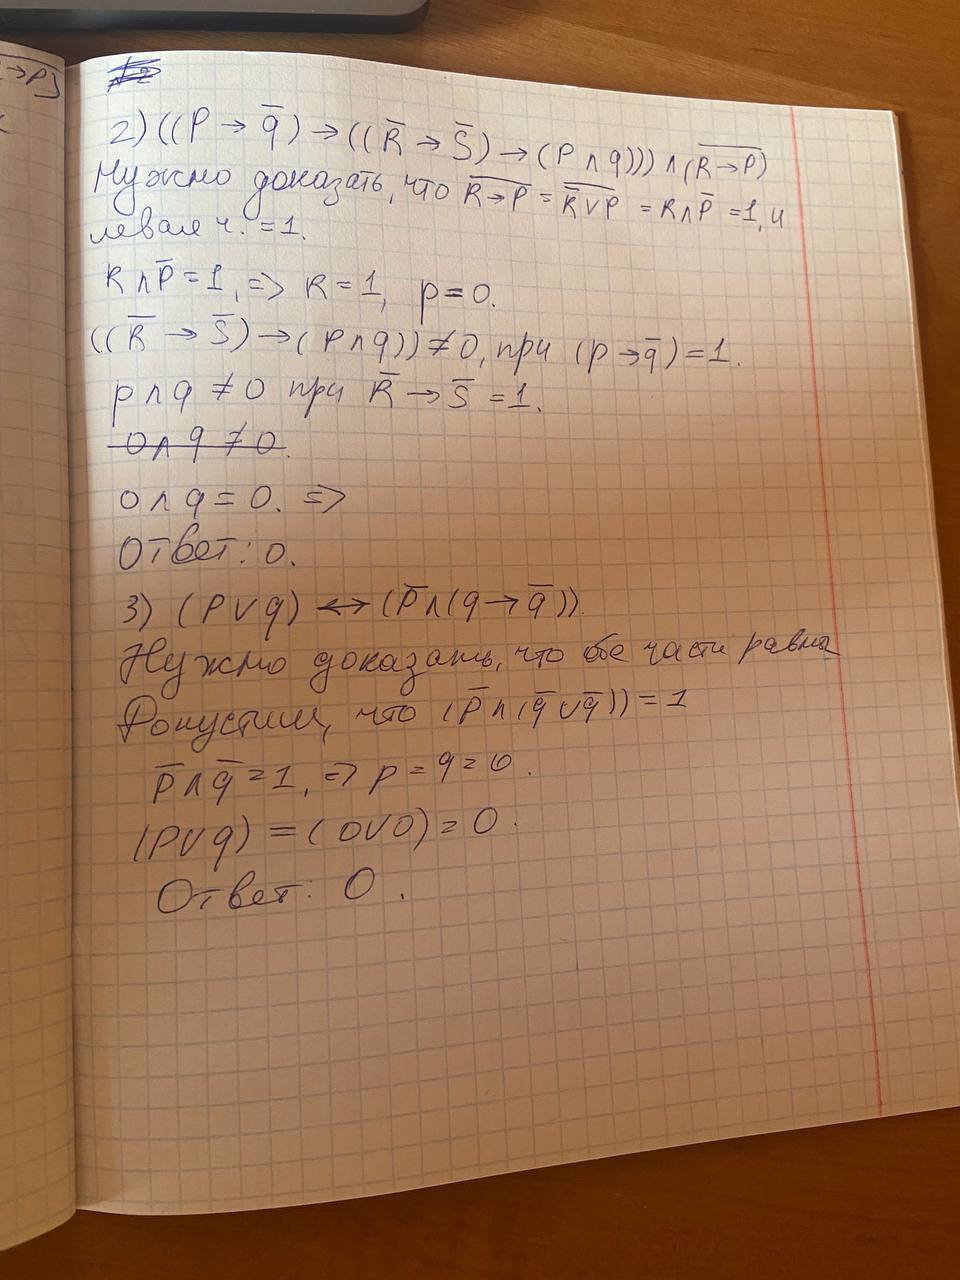 →P)
2) ((P → q̅) → ((R̅ → S̅) → (P ∧ q))) ∧ (R̅→̅P̅)
Нужно доказать, что R̅→̅P̅ = R̅̅∨̅P̅ = R∧P̅ = 1, и
левая ч. = 1.
R∧P̅ = 1, => R = 1, p = 0.
((R̅ → S̅) → (P∧q)) ≠ 0, при (p→q̅) = 1.
p∧q ≠ 0 при R̅ → S̅ = 1.
0∧q ≠ 0.
0∧q = 0. =>
Ответ: 0.
3) (P∨q) ↔ (P̅∧(q→q̅)).
Нужно доказать, что обе части равны
Допустим, что (P̅∧(q̅∨q̅)) = 1
P̅∧q̅ = 1, => p = q = 0.
(P∨q) = (0∨0) = 0.
Ответ: 0.